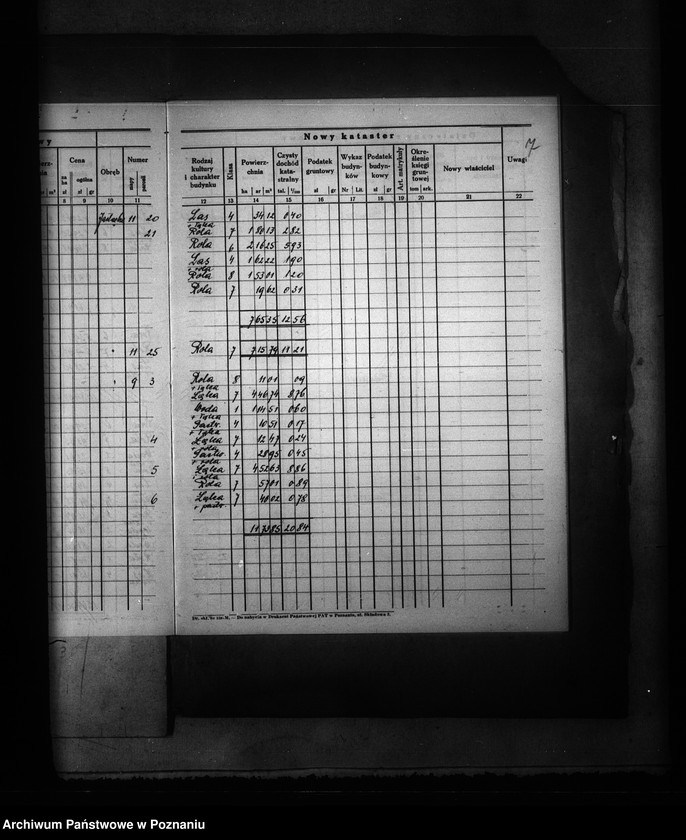 7
Nowy kataster
Cena
Numer
Obręb
ogólna
mapy
parcel
zł gr zł gr
m²
8 9 10 11
Rodzaj kultury i charakter budynku
Klasa
Powierzchnia
ha ar m²
Czysty dochód katastralny
tal. 1/100
Podatek gruntowy
zł gr
Wykaz budynków
Nr Lit.
Podatek budynkowy
zł gr
Art. matrykuły
Określenie księgi gruntowej
tom ark.
Nowy właściciel
Uwagi
12 13 14 15 16 17 18 19 20 21 22
11 20 Las 4 34 12 0 40
+ łąka
21 Rola 7 1 80 13 2 82
Rola 6 2 16 25 5 93
Las 4 1 62 22 1 90
Rola 8 1 53 01 1 20
Rola 7 19 62 0 31
7 65 35 12 56
11 25 Rola 7 7 15 79 11 21
9 3 Rola 8 11 01 09
+ łąka
Łąka 7 4 46 74 8 76
Woda 1 1 04 51 0 60
+ łąka
Pastw. 4 10 51 0 17
+ łąka
4 Łąka 7 12 47 0 24
Pastw. 4 28 95 0 45
+ rola
5 Łąka 7 4 52 63 8 86
Rola 7 57 01 0 89
6 Łąka 7 40 02 0 78
+ pastw.
11 73 85 20 84
Do nabycia w Drukarni Państwowej PAT w Poznaniu, ul. Składowa 2.
Archiwum Państwowe w Poznaniu